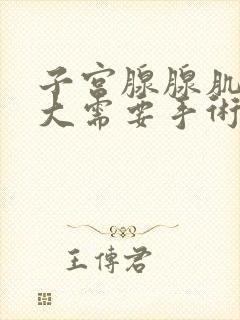 子宫腺腺肌
大需要手術
王傳君